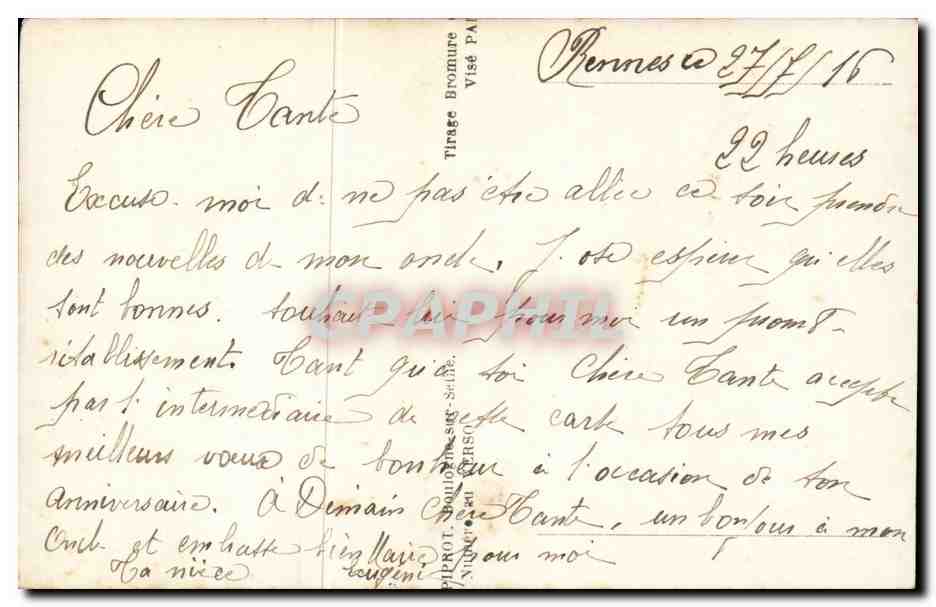 Rennes le 27/7/16
Chère Tante
22 heures
Excuse-moi de ne pas être allée ce soir prendre
des nouvelles de mon oncle. J'ose espérer qu'elles
sont bonnes. Souhait lui pour moi un prompt
rétablissement. Tant qu'à toi Chère Tante accepte
par l'intermédiaire de cette carte tous mes
meilleurs vœux de bonheur à l'occasion de ton
anniversaire. À Demain Chère Tante, un bonjour à mon
Oncle et embrasse bien Marie pour moi
Ta nièce Eugénie
Tirage Bromure
Visé PA
PIPROT. Boulogne-sur-Seine.
Numéro au VERSO
CPAPHIL